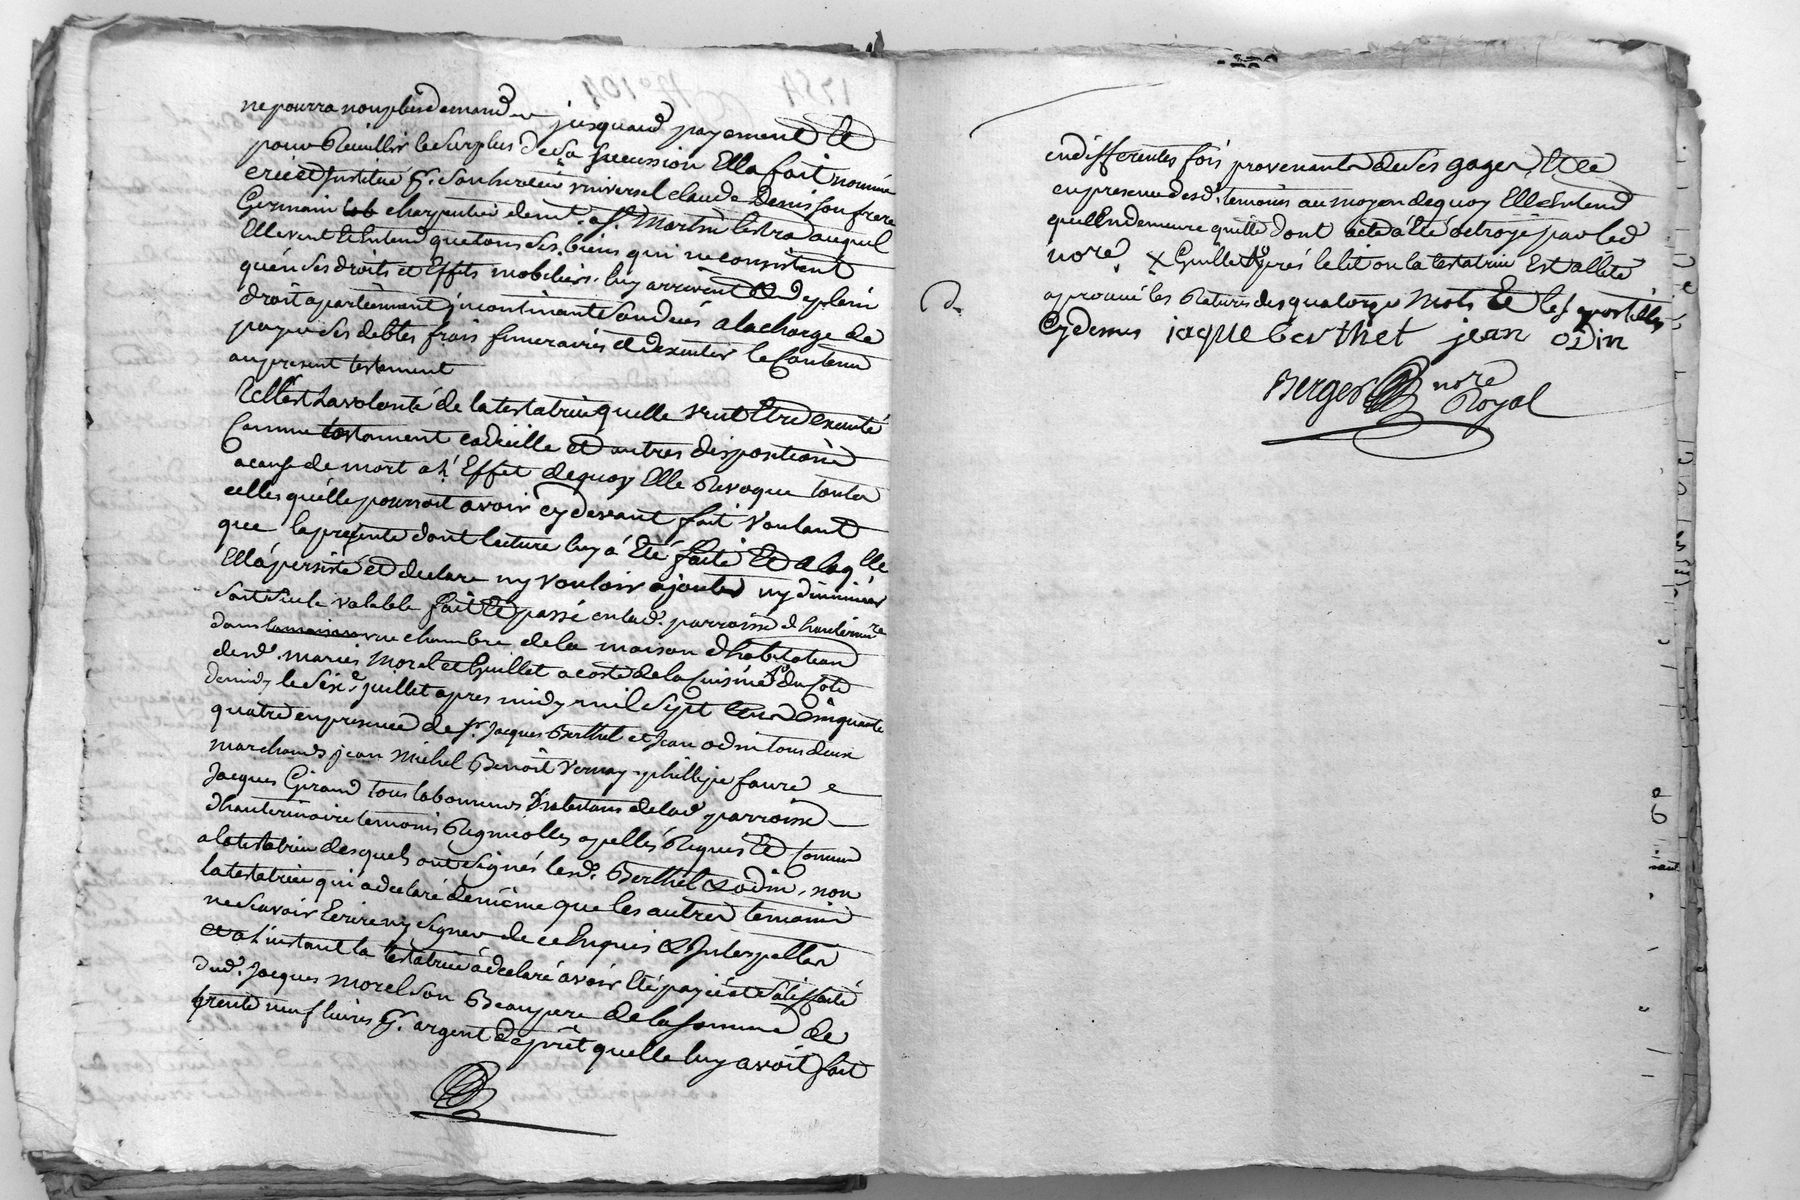 ne pourra non plus demander jusquaud payement Et
pour Recuillir le surplus de sa succession Ella fait nommé
créé et Institué pr. son heritier universel claude Denis son frere
Germain charpentier demt. a St. Martin lestra auquel
Elle veut Et Entend que tous ses biens qui ne consistent
quén ses droits et Effets mobiliers luy arrivent Et de plein
droit apartiennent incontinant son decés a la charge de
payer ses debtes frais funeraires et dexecuter le Contenu
au present testament
Telle est la volonté de la testatrice quelle veut Etre executé
Comme testament codicille et autres dispositions
a cause de mort a l'Effet dequoy Elle Revoque toutes
celles quélle pourroit avoir cy devant fait Voulant
que la presente dont lecture luy á Eté faite Et a laqlle
Ella persisté et declare ny vouloir ajouter ny diminüer
soit seule valable fait Et passé en lad. parroisse d'hauterivoire
dans la maison une chambre de la maison d'habitation
desd. mariés Morel et Guillet a costé de la Cuisine du Coté
de midy le six.e juillet apres midy mil sept Cent Cinquante
quatre en presence de sr. Jacques Berthet et Jean odin tous deux
marchands jean Michel Benoît Vernay phillipe favre et
Jacques Giraud tous laboureurs habitans de lad. parroisse
d'hauterivoire temoins Regnicolles apellés Requis Et Connus
a la testatrice desquels ont signés lesd. Berthet & odin, non
la testatrice qui a declaré de même que les autres temoins
ne scavoir Ecrire ny signer de ce Enquis & Interpellés
et a l'instant la testatrice á declaré avoir Eté payée et satisfaite
dud. Jacques Morel son Beaupere de la somme de
trente neuf livres pr. argent de prêt quelle luy avoit fait
en differentes fois provenants de ses gages, Et ce
en presence desd. temoins au moyen dequoy Elle Entend
quil En demeure quitte dont acte á Eté octroyé par led
nore. x Guillet aprés le lit ou la testatrice Est allitée
aprouvé les Ratures des quatorze mots Et les apostilles
Cy dessus iaque berthet jean odin
Berger nore
Royal